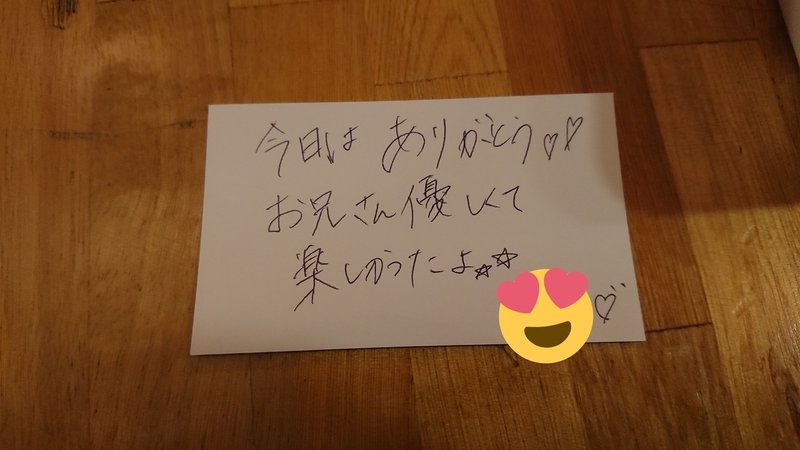 今日は ありがとう♡♡
お兄さん優しくて
楽しかったよ☆☆
♡